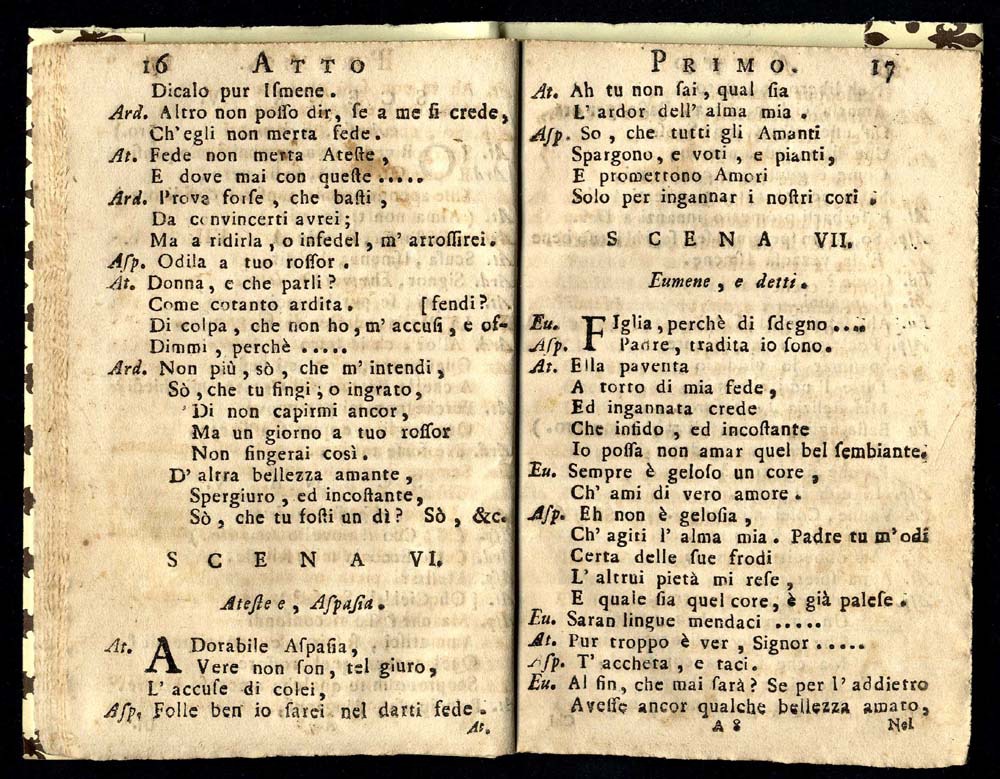 16 ATTO
Dicalo pur Iſmene.
Ard. Altro non poſſo dir, ſe a me ſi crede,
Ch'egli non merta fede.
At. Fede non merta Ateſte,
E dove mai con queſte .....
Ard. Prova forſe, che baſti,
Da convincerti avrei;
Ma a ridirla, o infedel, m'arroſſirei.
Aſp. Odila a tuo roſſor.
At. Donna, e che parli?
Come cotanto ardita. [fendi?
Di colpa, che non ho, m'accuſi, e of-
Dimmi, perchè .....
Ard. Non più, sò, che m'intendi,
Sò, che tu fingi, o ingrato,
Di non capirmi ancor,
Ma un giorno a tuo roſſor
Non fingerai così.
D'altra bellezza amante,
Spergiuro, ed incoſtante,
Sò, che tu foſti un dì? Sò, &c.
SCENA VI.
Ateſte e, Aſpaſia.
At. ADorabile Aſpaſia,
Vere non ſon, tel giuro,
L'accuſe di colei,
Aſp. Folle ben io ſarei nel darti fede.
At.
PRIMO. 17
At. Ah tu non ſai, qual ſia
L'ardor dell'alma mia.
Aſp. So, che tutti gli Amanti
Spargono, e voti, e pianti,
E promettono Amori
Solo per ingannar i noſtri cori.
SCENA VII.
Eumene, e detti.
Eu. FIglia, perchè di ſdegno ....
Aſp. Padre, tradita io ſono.
At. Ella paventa
A torto di mia fede,
Ed ingannata crede
Che infido, ed incoſtante
Io poſſa non amar quel bel ſembiante.
Eu. Sempre è geloſo un core,
Ch'ami di vero amore.
Aſp. Eh non è geloſia,
Ch'agiti l'alma mia. Padre tu m'odi
Certa delle ſue frodi
L'altrui pietà mi reſe,
E quale ſia quel core, è già paleſe.
Eu. Saran lingue mendaci .....
At. Pur troppo è ver, Signor .....
Aſp. T'accheta, e taci.
Eu. Al fin, che mai ſarà? Se per l'addietro
Aveſſe ancor qualche bellezza amato,
A 8 Nel